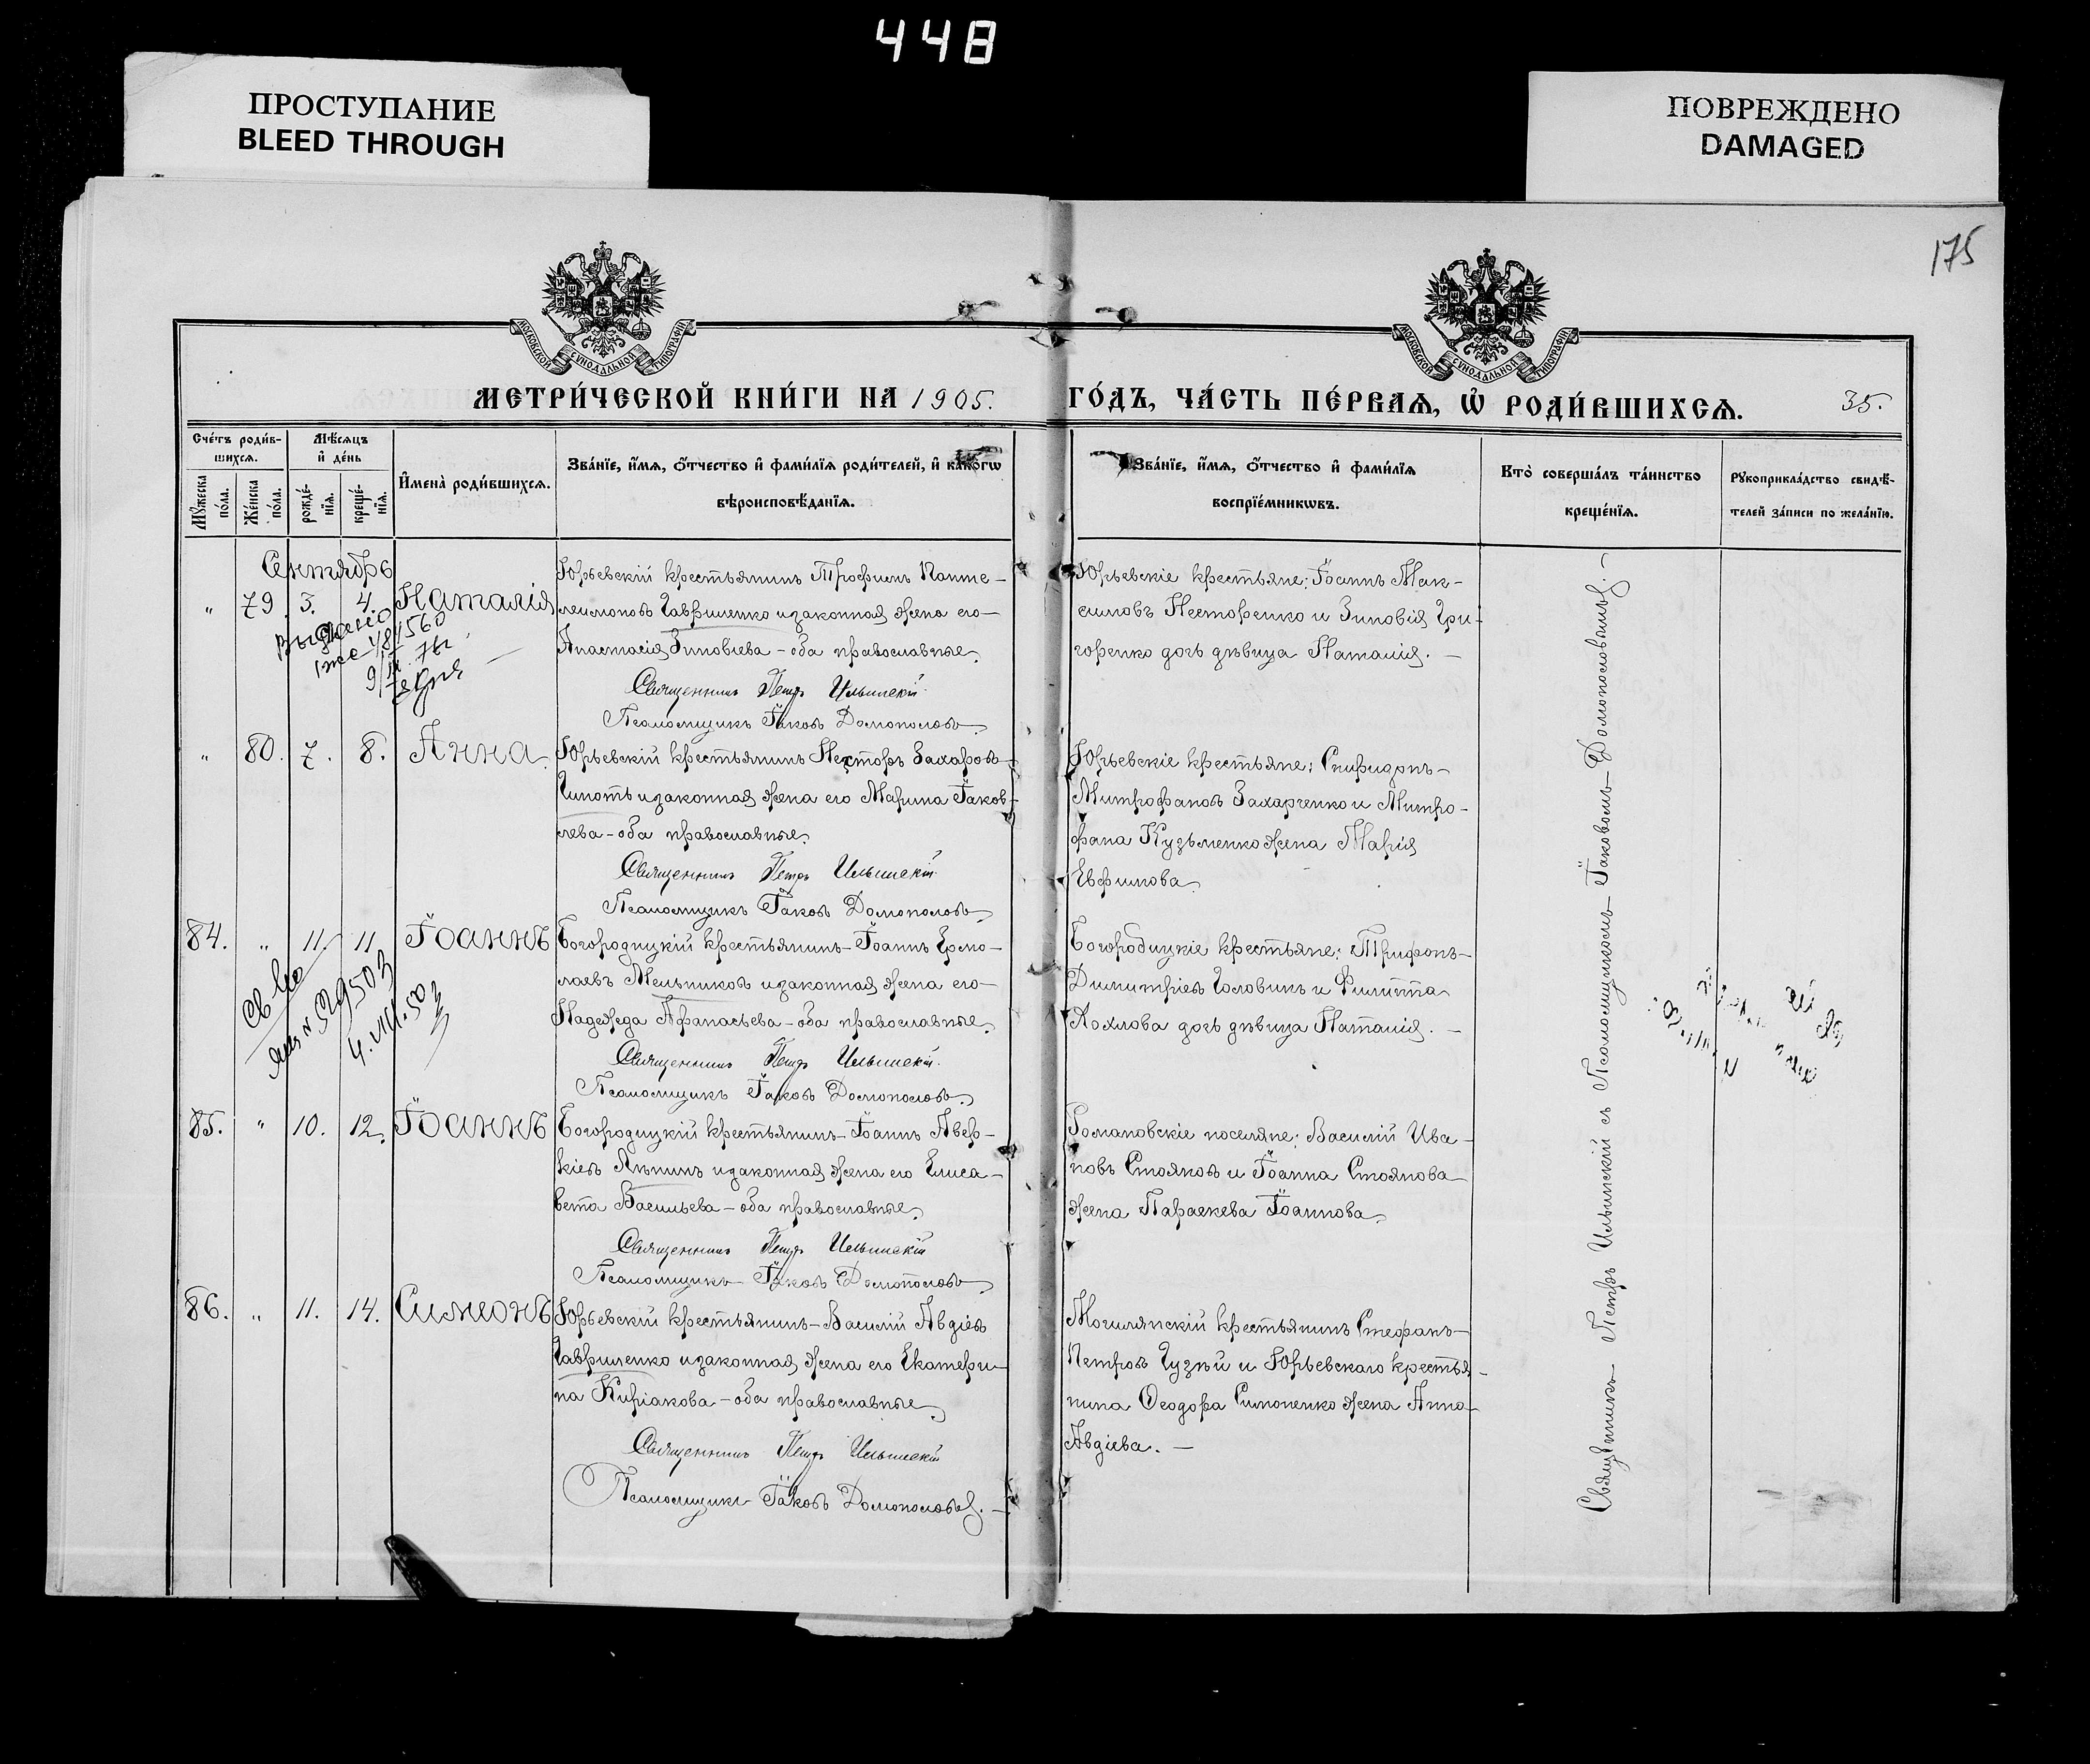 448
ПРОСТУПАНИЕ
BLEED THROUGH
ПОВРЕЖДЕНО
DAMAGED
175
МОСКОВСКОЙ СУНОДАЛЬНОЙ ТИПОГРАФІИ
МОСКОВСКОЙ СУНОДАЛЬНОЙ ТИПОГРАФІИ
МЕТРИ́ЧЕСКОЙ КНИ́ГИ НА 1905.
ГО́ДЪ, ЧА́СТЬ ПЕ́РВАѦ, Ѡ҆ РОДИ́ВШИХСѦ.
35.
Сче́тъ роди́в-
шихсѧ.
Мѣ́сѧцъ
и҆ де́нь
Мꙋ́жеска
по́ла.
Же́нска
по́ла.
рожде́-
нїѧ.
креще́-
нїѧ.
И҆мена̀ роди́вшихсѧ.
Зва́нїе, и҆́мѧ, ѻ҆́тчество и҆ фами́лїѧ роди́телей, и҆ како́гѡ
вѣроисповѣ́данїѧ.
Зва́нїе, и҆́мѧ, ѻ҆́тчество и҆ фами́лїѧ
воспрїе́мникѡвъ.
Кто̀ соверша́лъ та́инство
креще́нїѧ.
Рꙋкоприкла́дство свидѣ́-
телей за́писи по жела́нїю.
Сентябрь
„ 79 3. 4. Наталія
Юрьевскій крестьянинъ Трофимъ Панте-
леимоновъ Гавриленко и законная жена его
Анастасія Зиновіева - оба православные.
Священникъ Петръ Ильинскій
Псаломщикъ Іаковъ Домонословъ
Юрьевскіе крестьяне: Іоаннъ Мак-
симовъ Несторенко и Зиновія Гри-
горенко дочь дѣвица Наталія. -
Выдано
„ 80. 7. 8. Анна
Юрьевскій крестьянинъ Несторъ Захаровъ
Чипоть и законная жена его Марина Іаков-
лева - оба православные.
Священникъ Петръ Ильинскій
Псаломщикъ Іаковъ Домонословъ
Юрьевскіе крестьяне: Спиридонъ
Митрофановъ Захарченко и Митро-
фана Кузьменко жена Марія
Евфимова
84. „ 11. 11 Іоаннъ
Богородицкій крестьянинъ - Іоаннъ Ермо-
лаевъ Мельниковъ и законная жена его
Надежда Афанасьева - оба православные.
Священникъ Петръ Ильинскій
Псаломщикъ Іаковъ Домонословъ
Богородицкіе крестьяне: Трифонъ
Димитріевъ Головинъ и Филиппа
Козлова дочь дѣвица Наталія. -
85. „ 10. 12. Іоаннъ
Богородицкій крестьянинъ - Іоаннъ Авер-
кіевъ Япинъ и законная жена его Елиса-
вета Васильева - оба православные.
Священникъ Петръ Ильинскій
Псаломщикъ Іаковъ Домонословъ
Романовскіе поселяне: Василій Ива-
новъ Стояновъ и Іоанна Стоянова
жена Параскева Іоаннова
86. „ 11. 14. Симионъ
Юрьевскій крестьянинъ - Василій Авдіевъ
Гавриленко и законная жена его Екатери-
на Киріакова - оба православные
Священникъ Петръ Ильинскій
Псаломщикъ Іаковъ Домонословъ. -
Могилянскій крестьянинъ Стефанъ
Петровъ Гузѣй и Юрьевскаго крестья-
нина Ѳеодора Симоненко жена Анна
Авдіева. -
Священникъ Петръ Ильинскій съ Псаломщикомъ Іаковомъ Домонословымъ. -